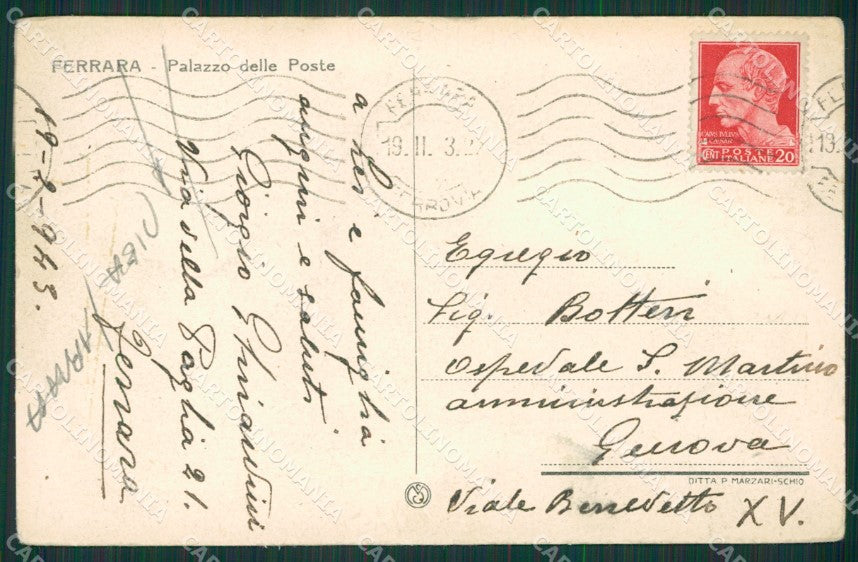 FERRARA - Palazzo delle Poste
a Lei e famiglia
auguri e saluti
Giorgio
Via della Paglia 21.
Ferrara
19-2-943.
FERROVIA
19.II
POSTE
ITALIANE
CENT 20
Egregio
Sig. Botteri
Ospedale S. Martino
amministrazione
Genova
DITTA P. MARZARI-SCHIO
Viale Benedetto XV.
CARTOLINOMANIA